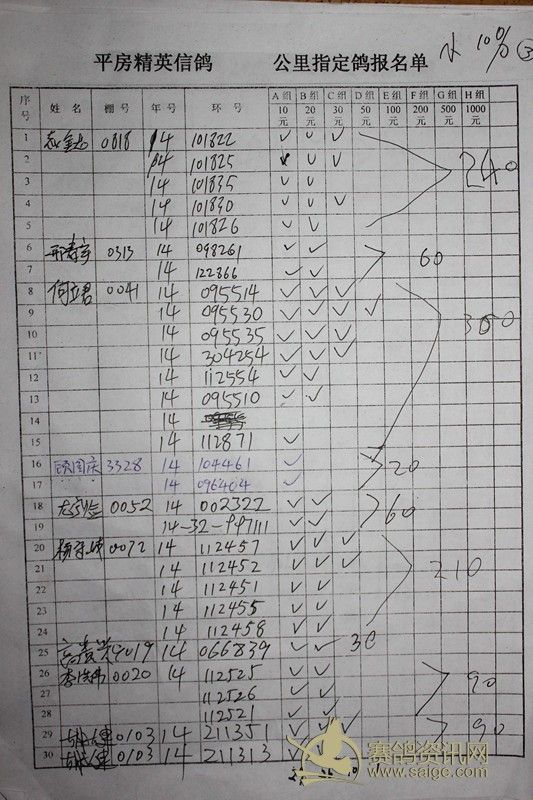 水 10% ③
平房精英信鸽 公里指定鸽报名单
序号 姓 名 棚 号 年 号 环 号 A 组 10元 B 组 20元 C 组 30元 D 组 50元 E 组 100元 F 组 200元 G 组 500元 H 组 1000元
1 0818 14 101822 ✓ ✓ ✓
2 14 101825 ✓ ✓ ✓ 240
3 14 101835 ✓ ✓
4 14 101830 ✓ ✓ ✓
5 14 101826 ✓ ✓
6 0313 14 098261 ✓ ✓ 60
7 14 122866 ✓ ✓
8 何立君 0041 14 095514 ✓ ✓ ✓
9 14 095530 ✓ ✓ ✓ ✓ 350
10 14 095535 ✓ ✓ ✓
11 14 304254 ✓ ✓ ✓
12 14 112554 ✓ ✓
13 14 095510 ✓ ✓
14 14
15 14 112871 ✓
16 3328 14 104461 ✓ 20
17 14 096404 ✓
18 0052 14 002322 ✓ ✓ 60
19 14-32-997111 ✓ ✓
20 0072 14 112457 ✓ ✓ ✓
21 14 112452 ✓ ✓ ✓ 210
22 14 112451 ✓ ✓
23 14 112455 ✓ ✓
24 14 112458 ✓ ✓
25 高贵兴 4019 14 066839 ✓ ✓ 30
26 0020 14 112525 ✓ ✓ 90
27 112526 ✓ ✓
28 112521 ✓ ✓
29 0103 14 211351 ✓ ✓ ✓ 90
30 0103 14 211313 ✓
赛鸽资讯网
www.saige.com